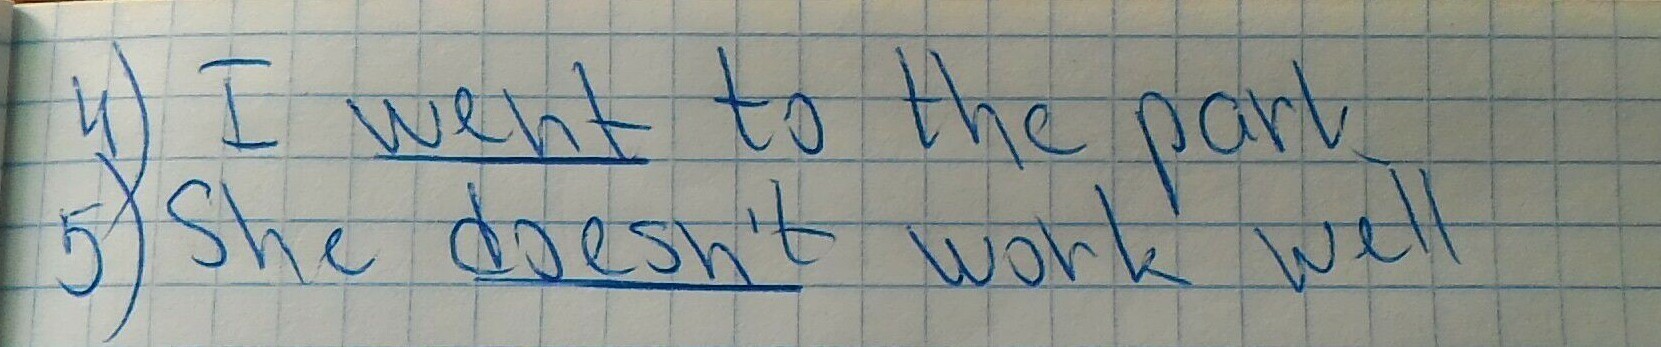 4) I went to the park
5) She doesn't work well